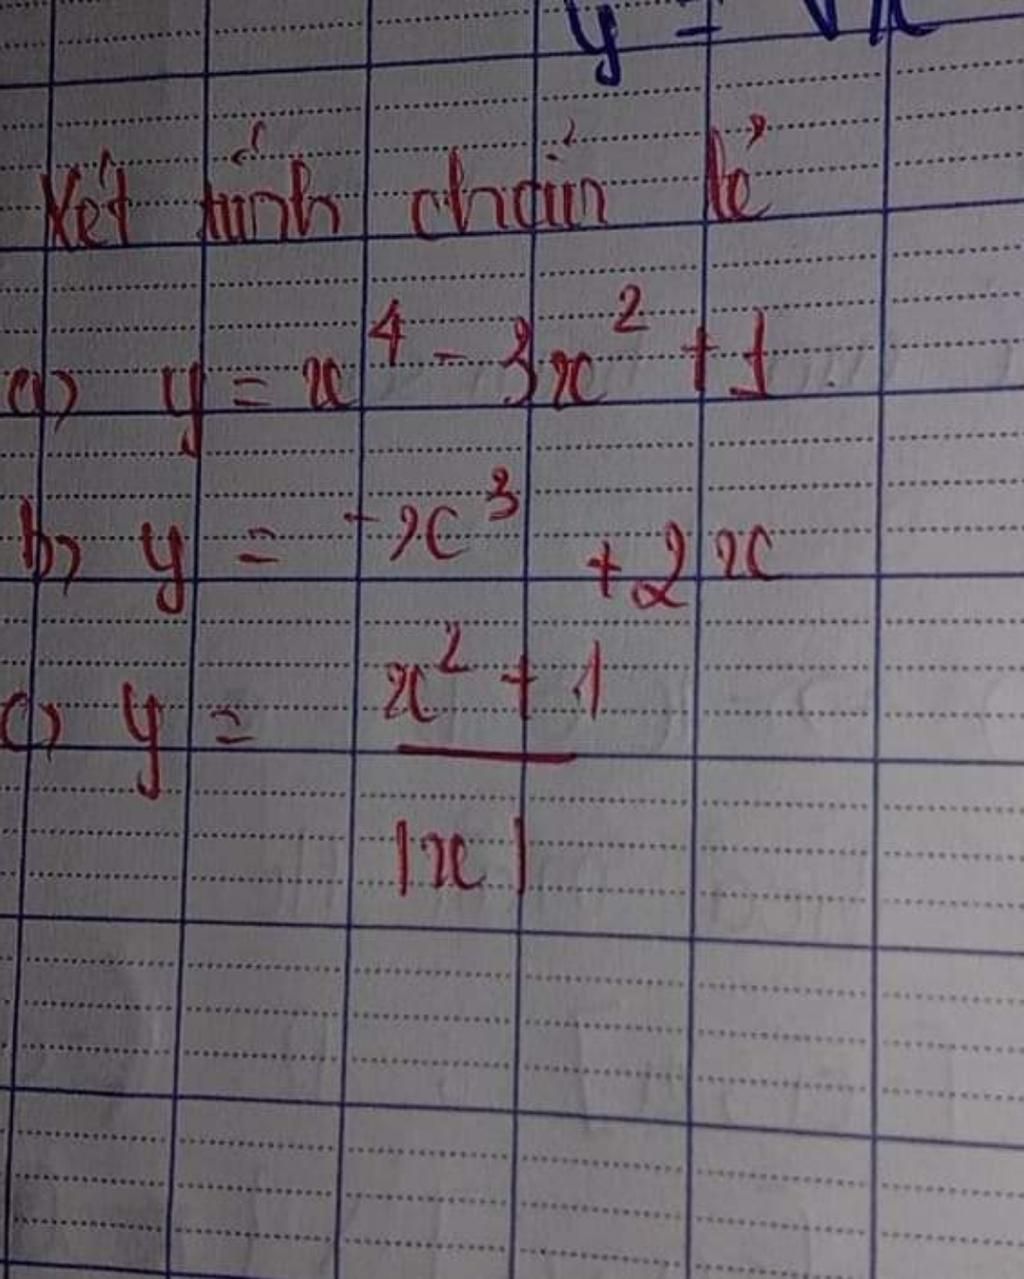 y = √x
Xét tính chẵn lẻ
a) y = x⁴ - 3x² + 1
b) y = -x³ + 2x
c) y = x² + 1
|x|